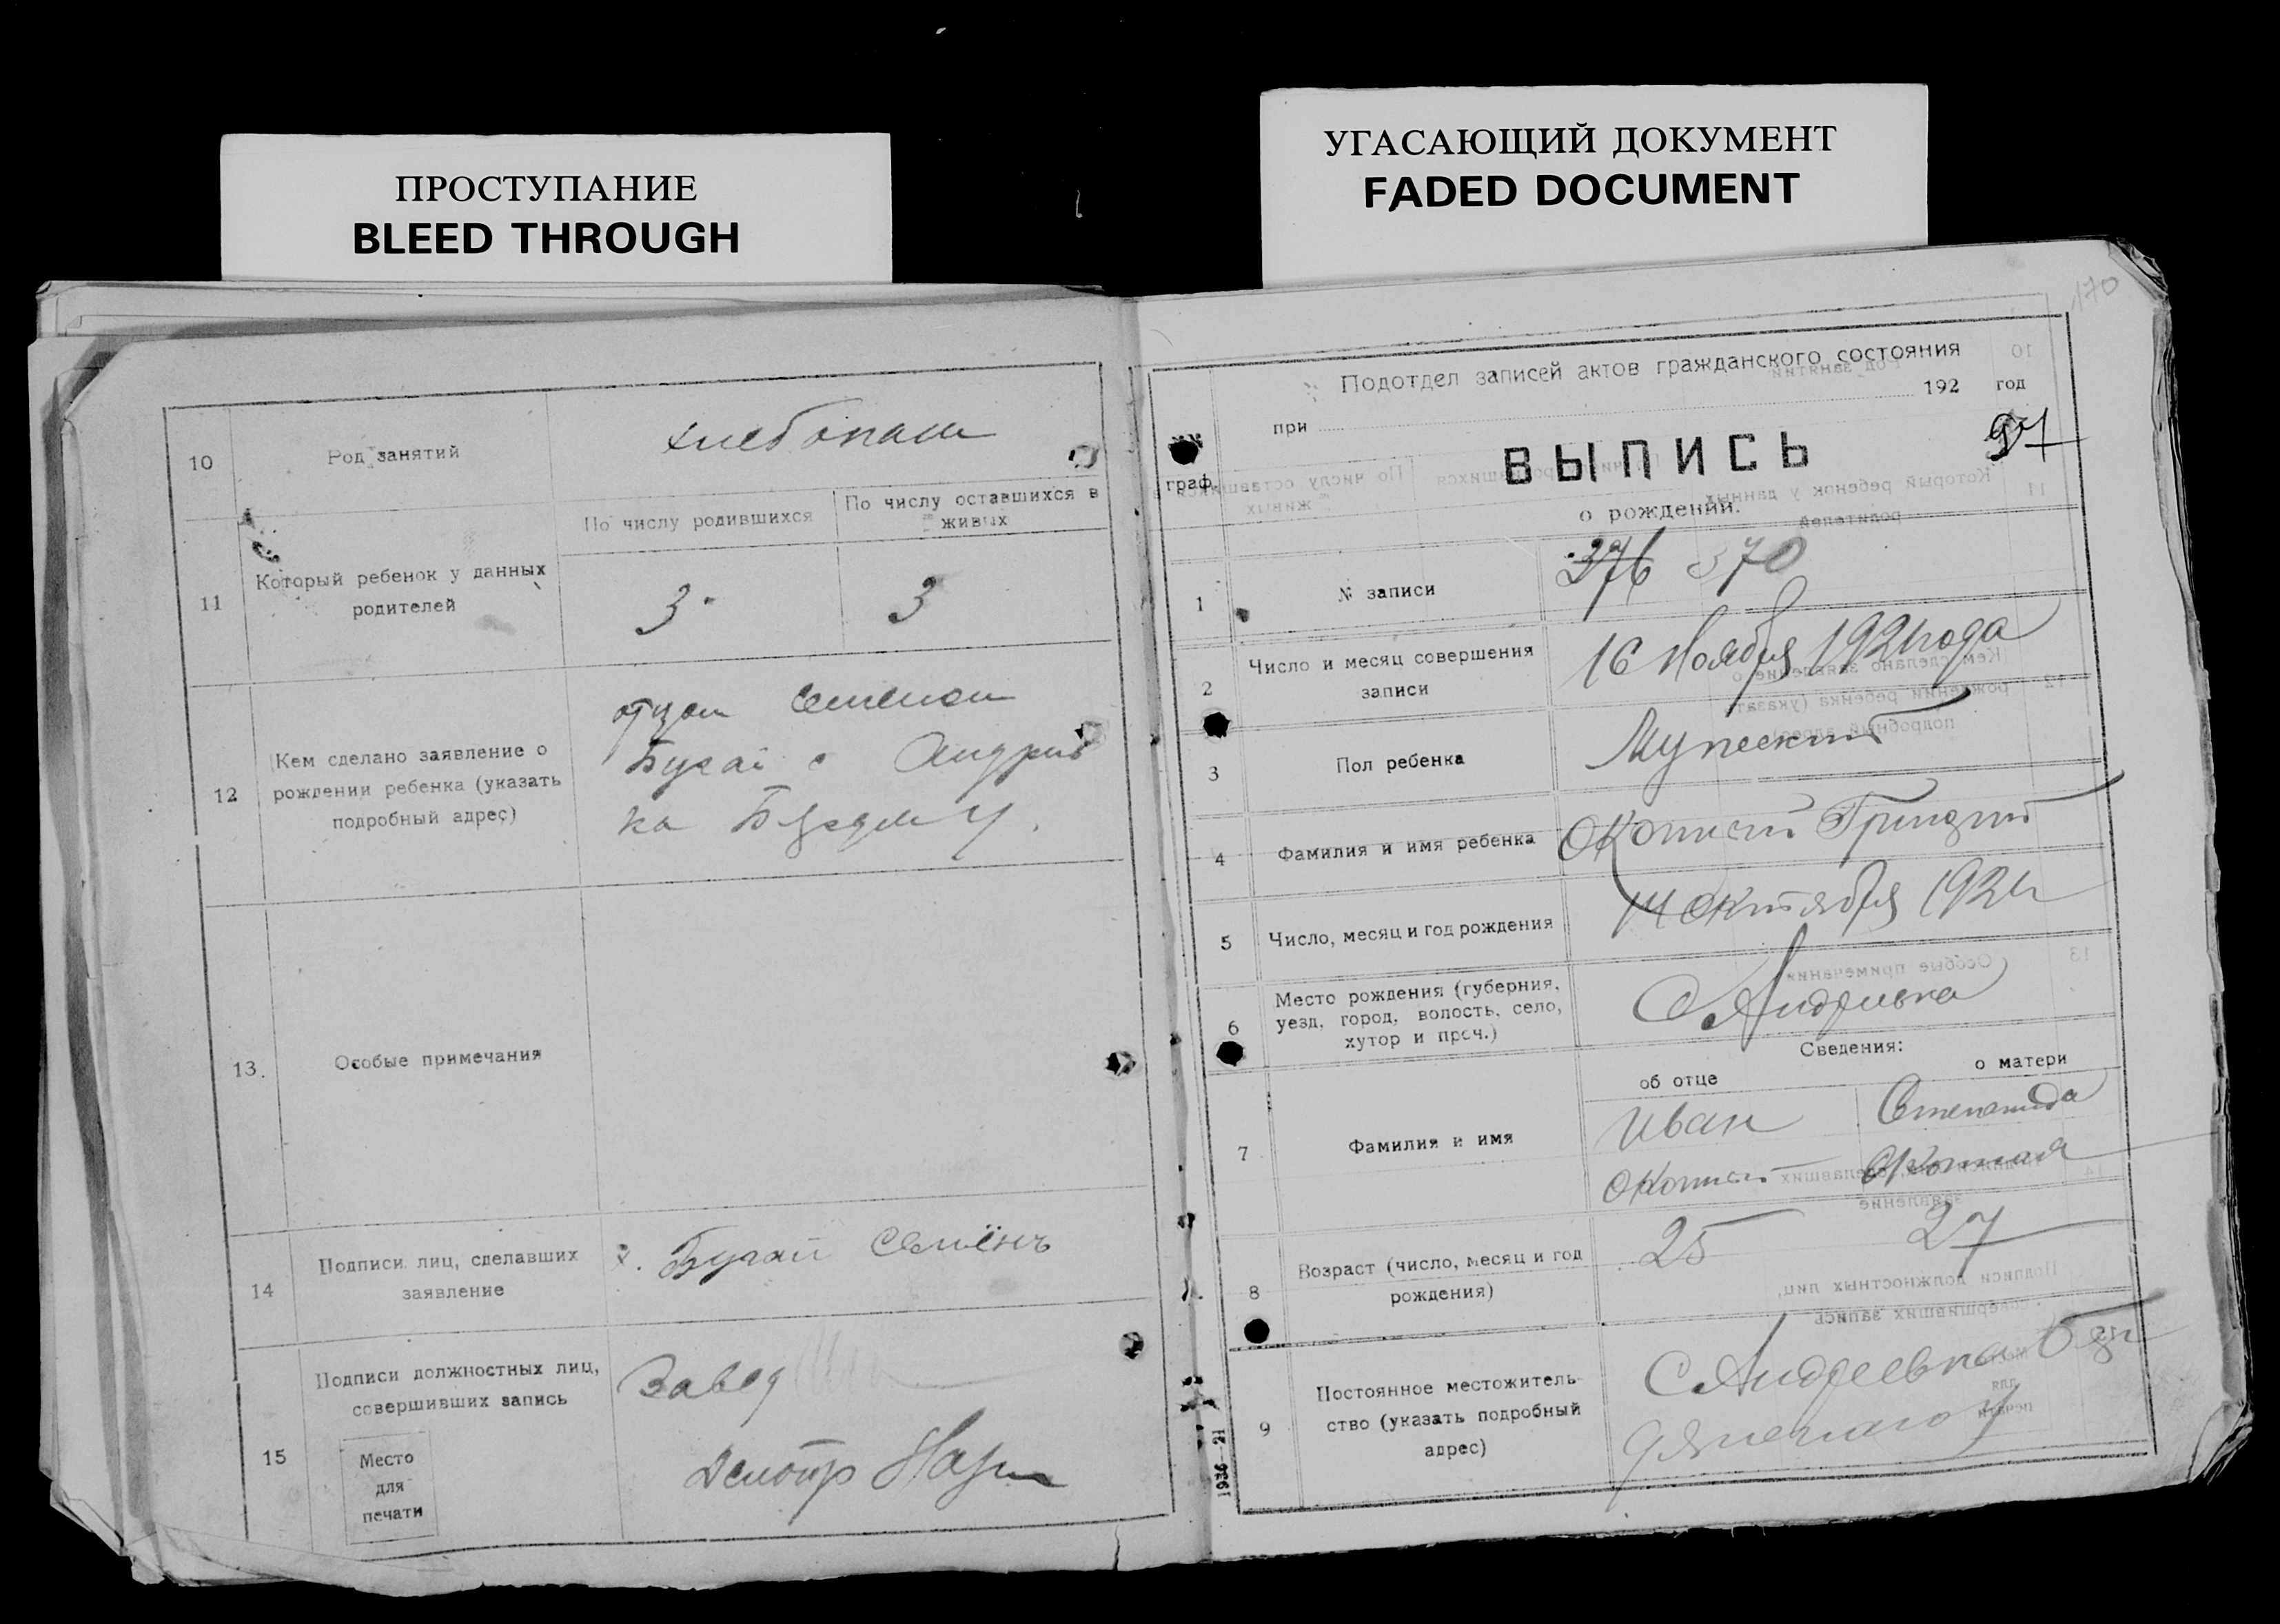 ПРОСТУПАНИЕ
BLEED THROUGH
УГАСАЮЩИЙ ДОКУМЕНТ
FADED DOCUMENT
10
Род занятий
хлебопаш
11
Который ребенок у данных
родителей
По числу родившихся
По числу оставшихся в
живых
3
3
12
Кем сделано заявление о
рождении ребенка (указать
подробный адрес)
отцом Семеном
Бугай с Андрив
ка
13.
Особые примечания
14
Подписи лиц, сделавших
заявление
Бугай Семёнъ
15
Подписи должностных лиц,
совершивших запись
Место
для
печати
Завед
170
Подотдел записей актов гражданского состояния
при 192 год
97
№№
граф.
ВЫПИСЬ
о рождении.
1
№ записи
376 370
2
Число и месяц совершения
записи
16 Ноября 1921 года
3
Пол ребенка
Мужеский
4
Фамилия и имя ребенка
Окопный Гриций
5
Число, месяц и год рождения
14 октября 192
6
Место рождения (губерния,
уезд, город, волость, село,
хутор и проч.)
С Андривка
Сведения:
об отце
о матери
7
Фамилия и имя
Иван
Окопный
Степанида
Окопная
8
Возраст (число, месяц и год
рождения)
25
27
9
Постоянное местожитель-
ство (указать подробный
адрес)
С Андреевка
1936—21